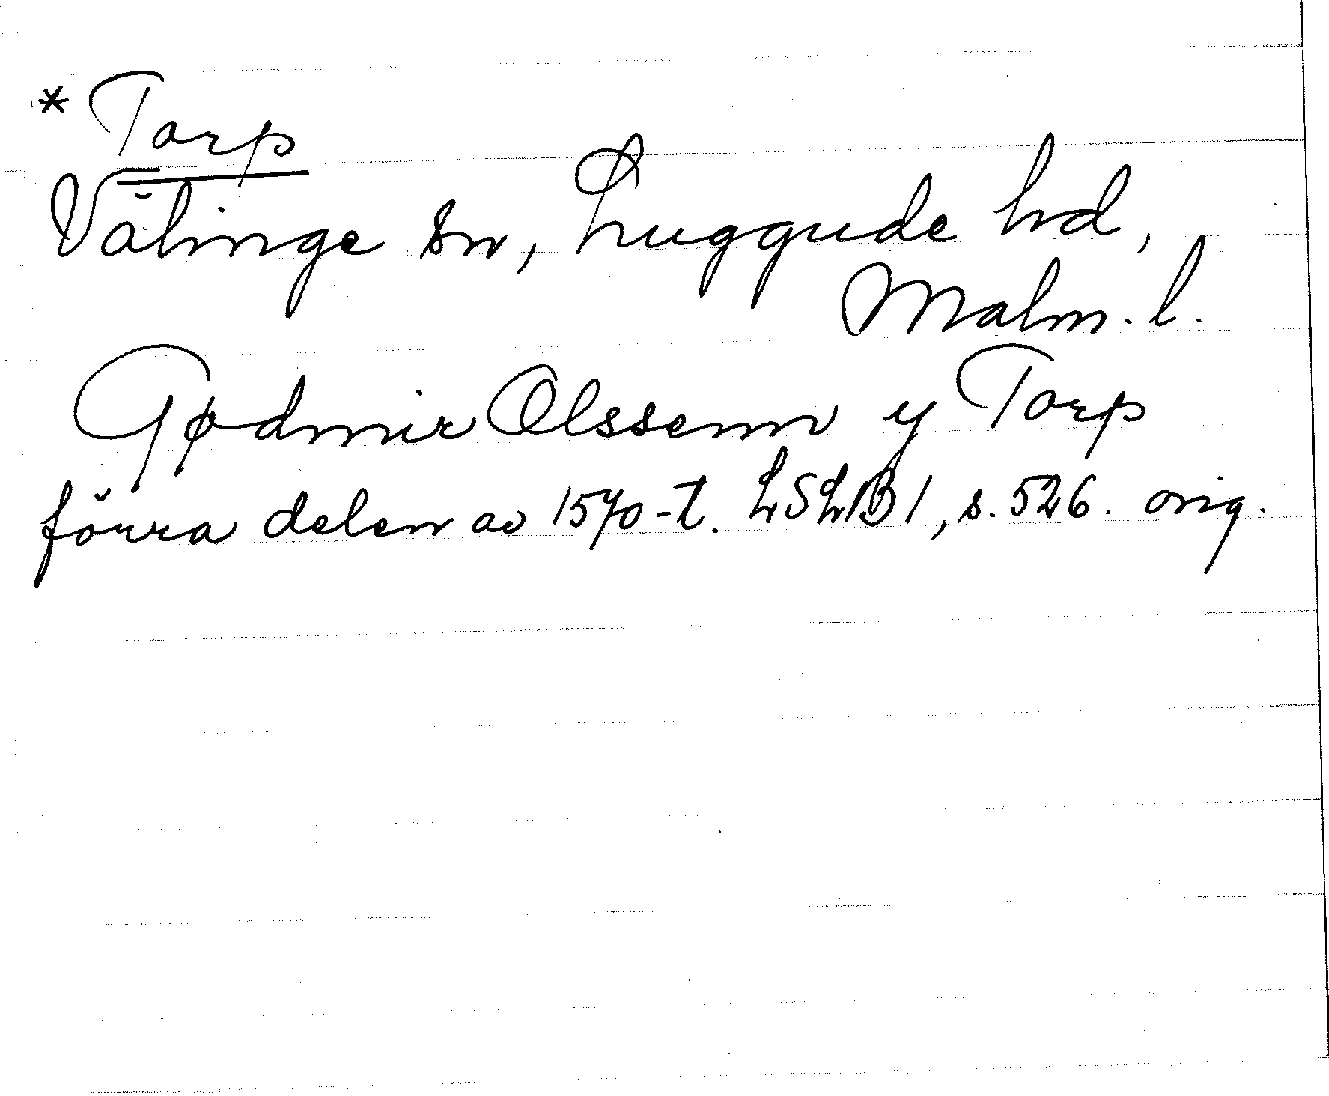 * Torp
Välinge sn, Luggude hd,
Malm. l.
Gødmir Olssenn y Torp
förra delen av 1570-t. LSLB 1, s. 526. orig.